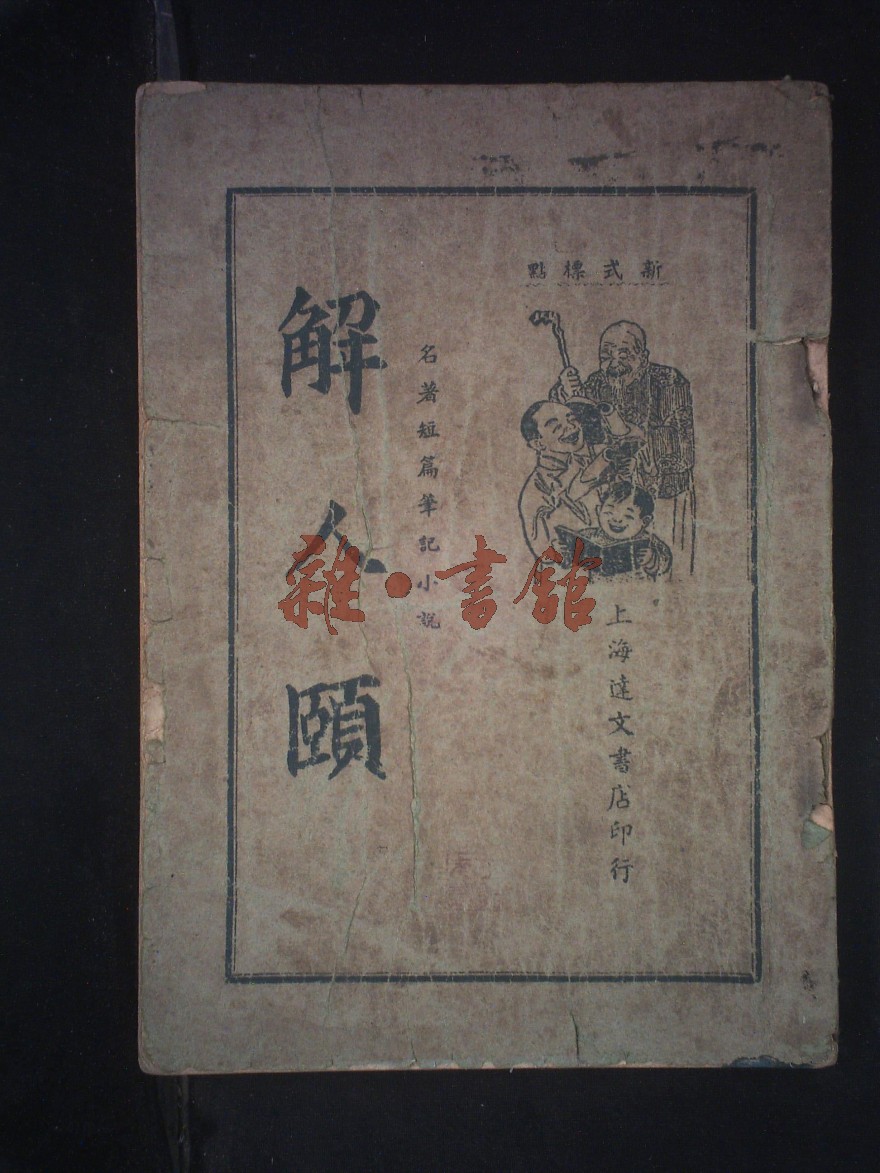 新式標點
上海達文書店印行
名著短篇筆記小說
解人頤
雜·書館